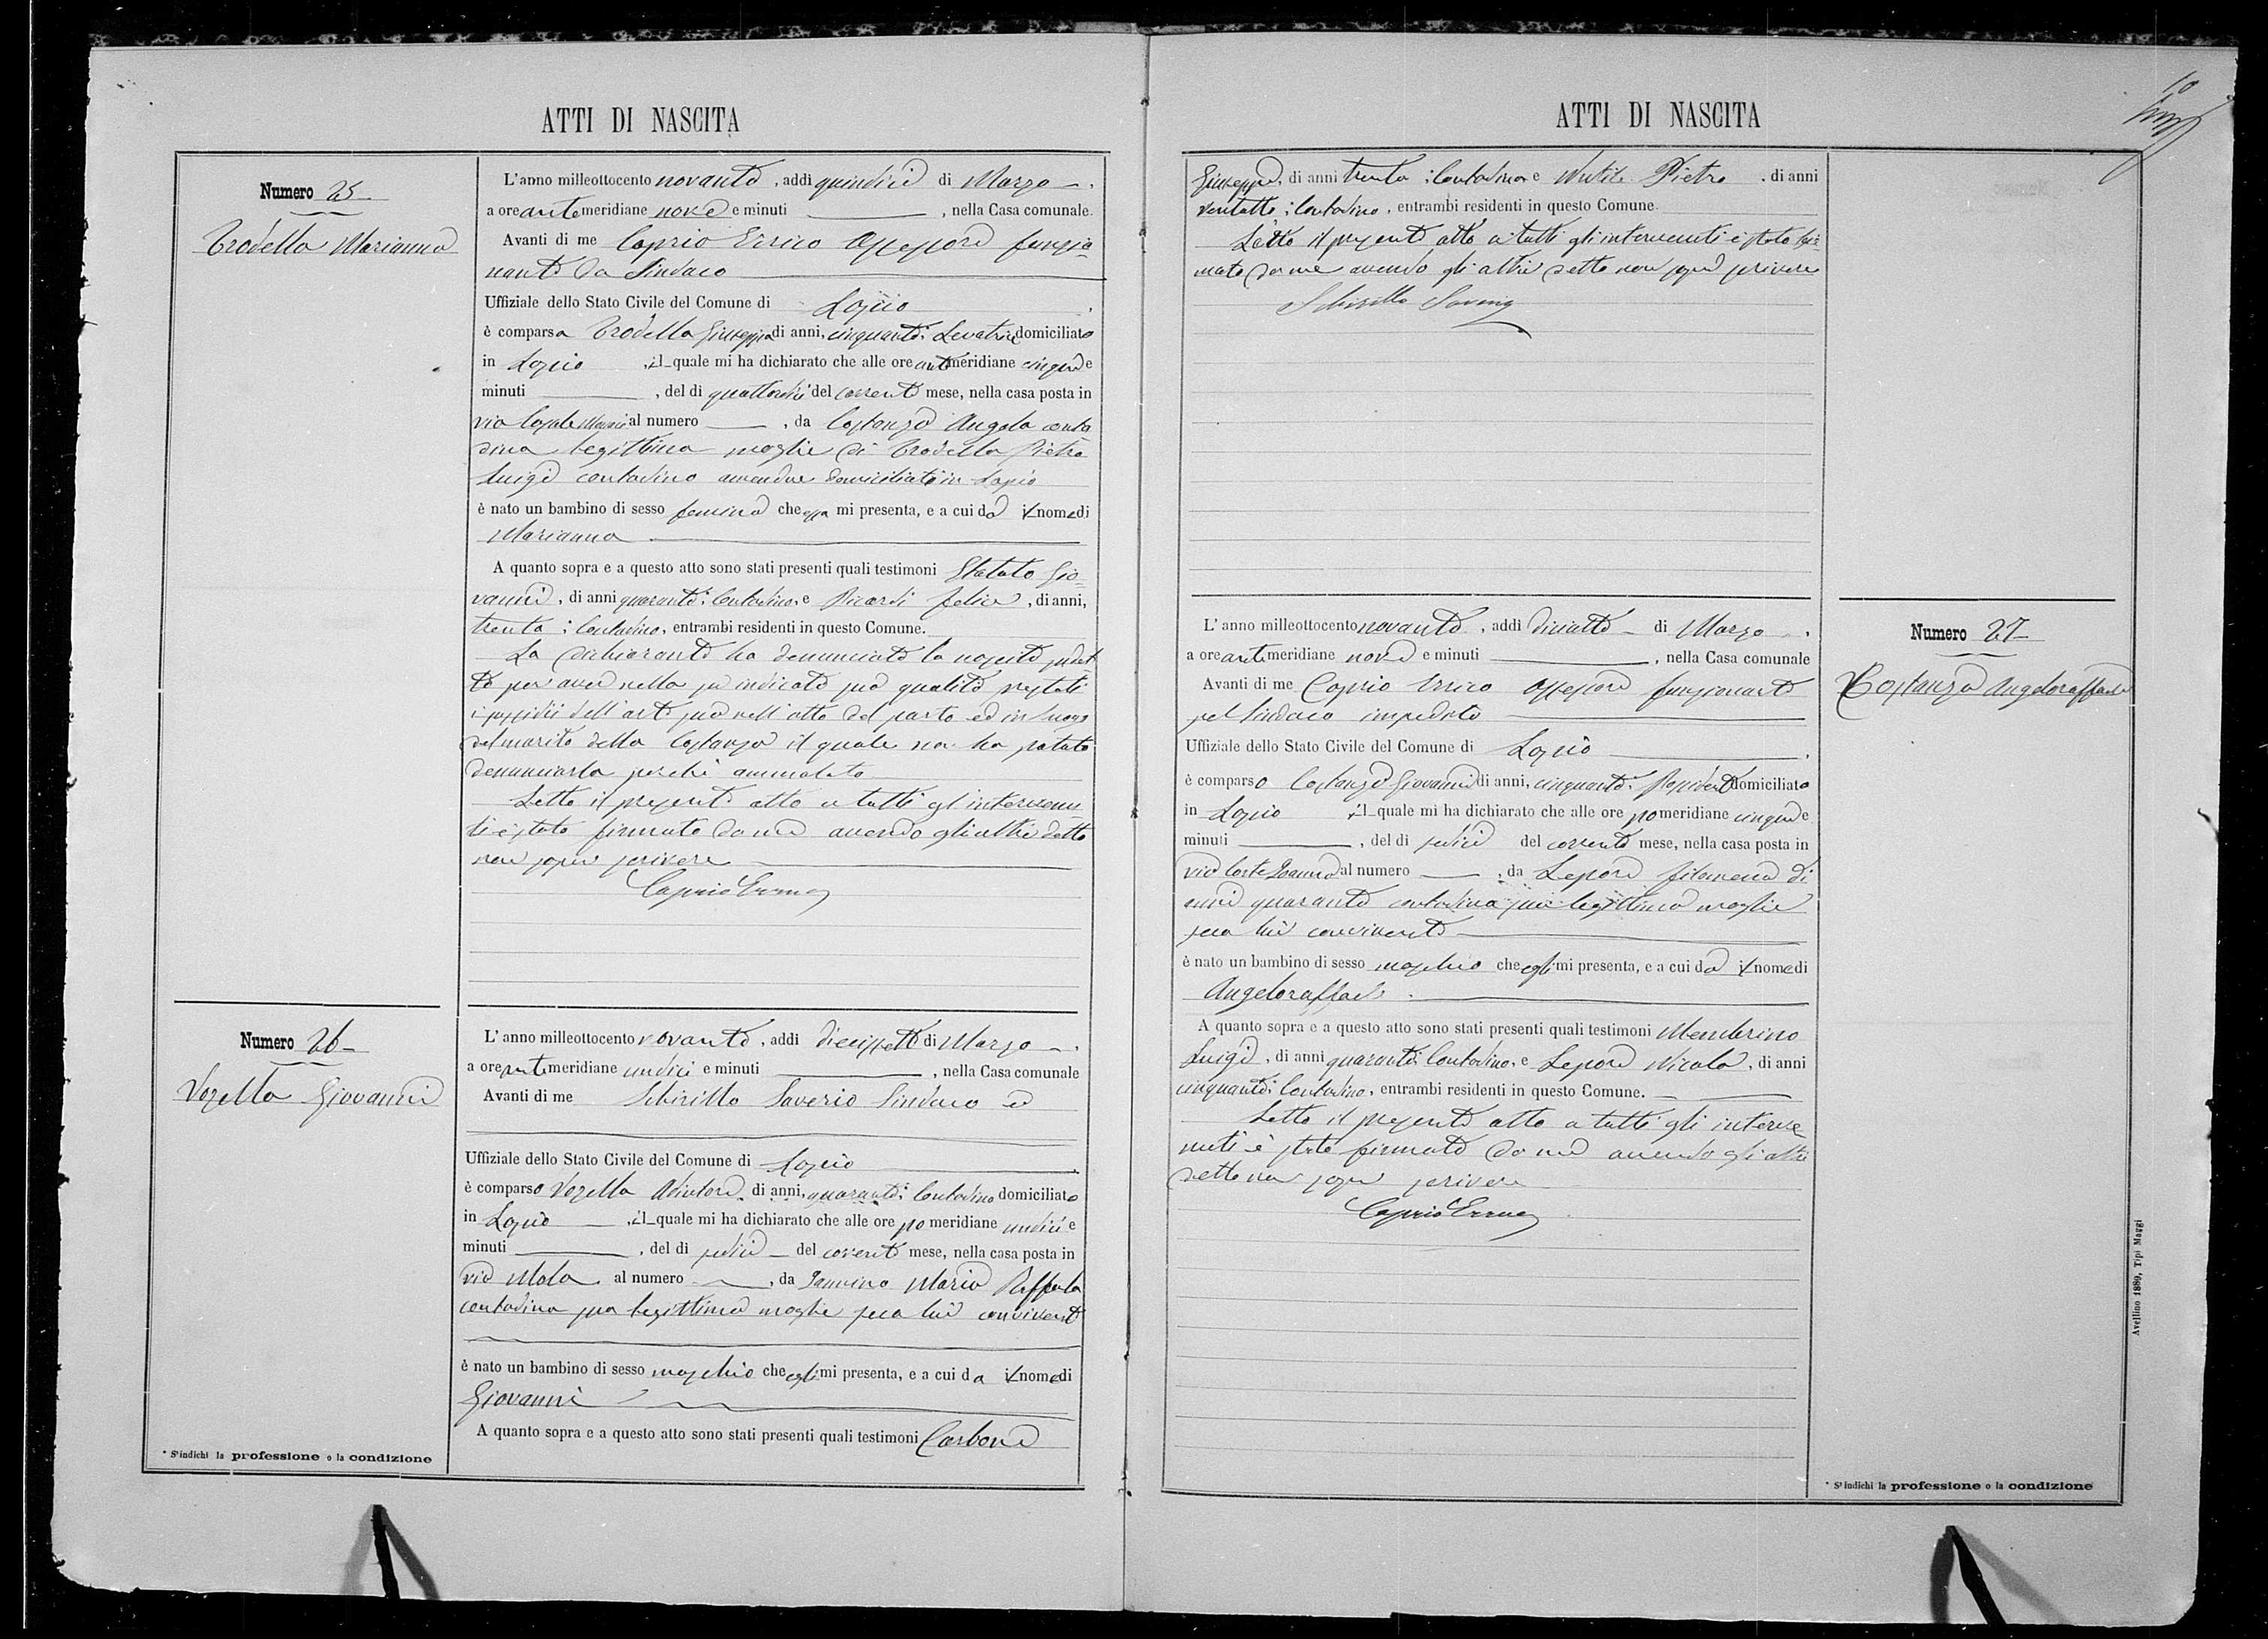 ATTI DI NASCITA
Numero 25
Trodella Marianna
L'anno milleottocento novanta, addì quindici di Marzo,
a ore antimeridiane nove e minuti , nella Casa comunale.
Avanti di me Caprio Errico Assessore funzio
nante da Sindaco
Uffiziale dello Stato Civile del Comune di Lapio
è comparsa Trodella Giuseppa di anni, cinquanta: Levatrice domiciliata
in Lapio , il quale mi ha dichiarato che alle ore antimeridiane cinque e
minuti , del dì quattordici del corrente mese, nella casa posta in
via al numero , da Costanza Angela conta
dina legittima moglie di Trodella Pietro
Luigi contadino amendue domiciliati in Lapio
è nato un bambino di sesso femina che essa mi presenta, e a cui dà il nome di
Marianna
A quanto sopra e a questo atto sono stati presenti quali testimoni Statuto Gio=
vanni, di anni quaranta: Contadino, e Ricardi Felice, di anni,
trenta: Contadino, entrambi residenti in questo Comune.
La dichiarante ha denunciato la nascita
per aver nella indicata sua qualità prestati
i sussidii dell'arte sua nell'atto del parto ed in luogo
del marito della Costanza il quale non ha potuto
denunciarla perchè ammalato
Letto il presente atto a tutti gl'intervenu
ti è stato firmato da me avendo gli altri detto
non saper scrivere
Caprio Errico
Numero 26
Vozella Giovanni
L'anno milleottocento novanta, addì diecissette di Marzo,
a ore antimeridiane undici e minuti , nella Casa comunale
Avanti di me Schirillo Saverio Sindaco e
Uffiziale dello Stato Civile del Comune di Lapio
è comparso Vozella di anni, quaranta: Contadino domiciliato
in Lapio , il quale mi ha dichiarato che alle ore pomeridiane undici e
minuti , del dì sedici del corrente mese, nella casa posta in
via Mala al numero , da Iannino Maria Raffaela
contadina sua legittima moglie seco lui convivente
è nato un bambino di sesso maschio che egli mi presenta, e a cui dà il nome di
Giovanni
A quanto sopra e a questo atto sono stati presenti quali testimoni Carbone
* S'indichi la professione o la condizione
ATTI DI NASCITA
10
Giuseppe, di anni trenta: Contadino e Nutile Pietro, di anni
ventotto: Contadino, entrambi residenti in questo Comune.
Letto il presente atto a tutti gli intervenuti è stato fir=
mato da me avendo gli altri detto non saper scrivere
Schirillo Saverio
Numero 27
Costanza Angeloraffaele
L'anno milleottocento novanta, addì diciotto di Marzo,
a ore antimeridiane nove e minuti , nella Casa comunale
Avanti di me Caprio Errico Assessore funzionante
pel Sindaco impedito
Uffiziale dello Stato Civile del Comune di Lapio
è comparso Costanza Giovanni di anni, cinquanta: domiciliato
in Lapio il quale mi ha dichiarato che alle ore pomeridiane cinque e
minuti , del dì sedici del corrente mese, nella casa posta in
via al numero , da Lepore Filomena di
anni quaranta contadina sua legittima moglie
seco lui convivente
è nato un bambino di sesso maschio che egli mi presenta, e a cui dà il nome di
Angeloraffaele
A quanto sopra e a questo atto sono stati presenti quali testimoni Membrino
Luigi, di anni quaranta: Contadino, e Lepore Nicola, di anni
cinquanta: Contadino, entrambi residenti in questo Comune.
Letto il presente atto a tutti gli interve
nuti è stato firmato da me avendo gli altri
detto non saper scrivere
Caprio Errico
* S'indichi la professione o la condizione
Avellino 1889, Tipi Maggi